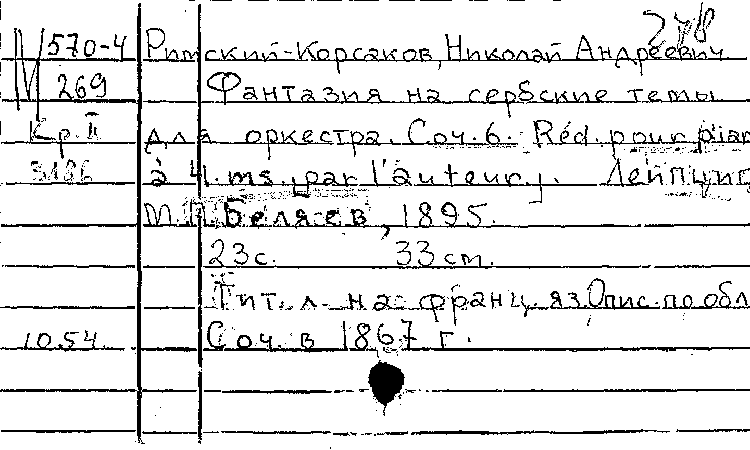 278
570-4 Римский-Корсаков, Николай Андреевич
269 Фантазия на сербские темы
Кр. II для оркестра. Соч. 6. Réd. pour pian
3186 à 4. ms. par l'auteur. Лейпциг
М.П. Беляев, 1895.
23 с. 33 cm.
Тит. л. на франц. яз. Опис. по обл
10.54. Соч. в 1867 г.